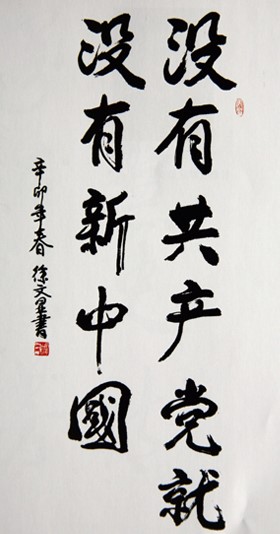 没有共产党就
没有新中國
辛卯年春 徐文星書